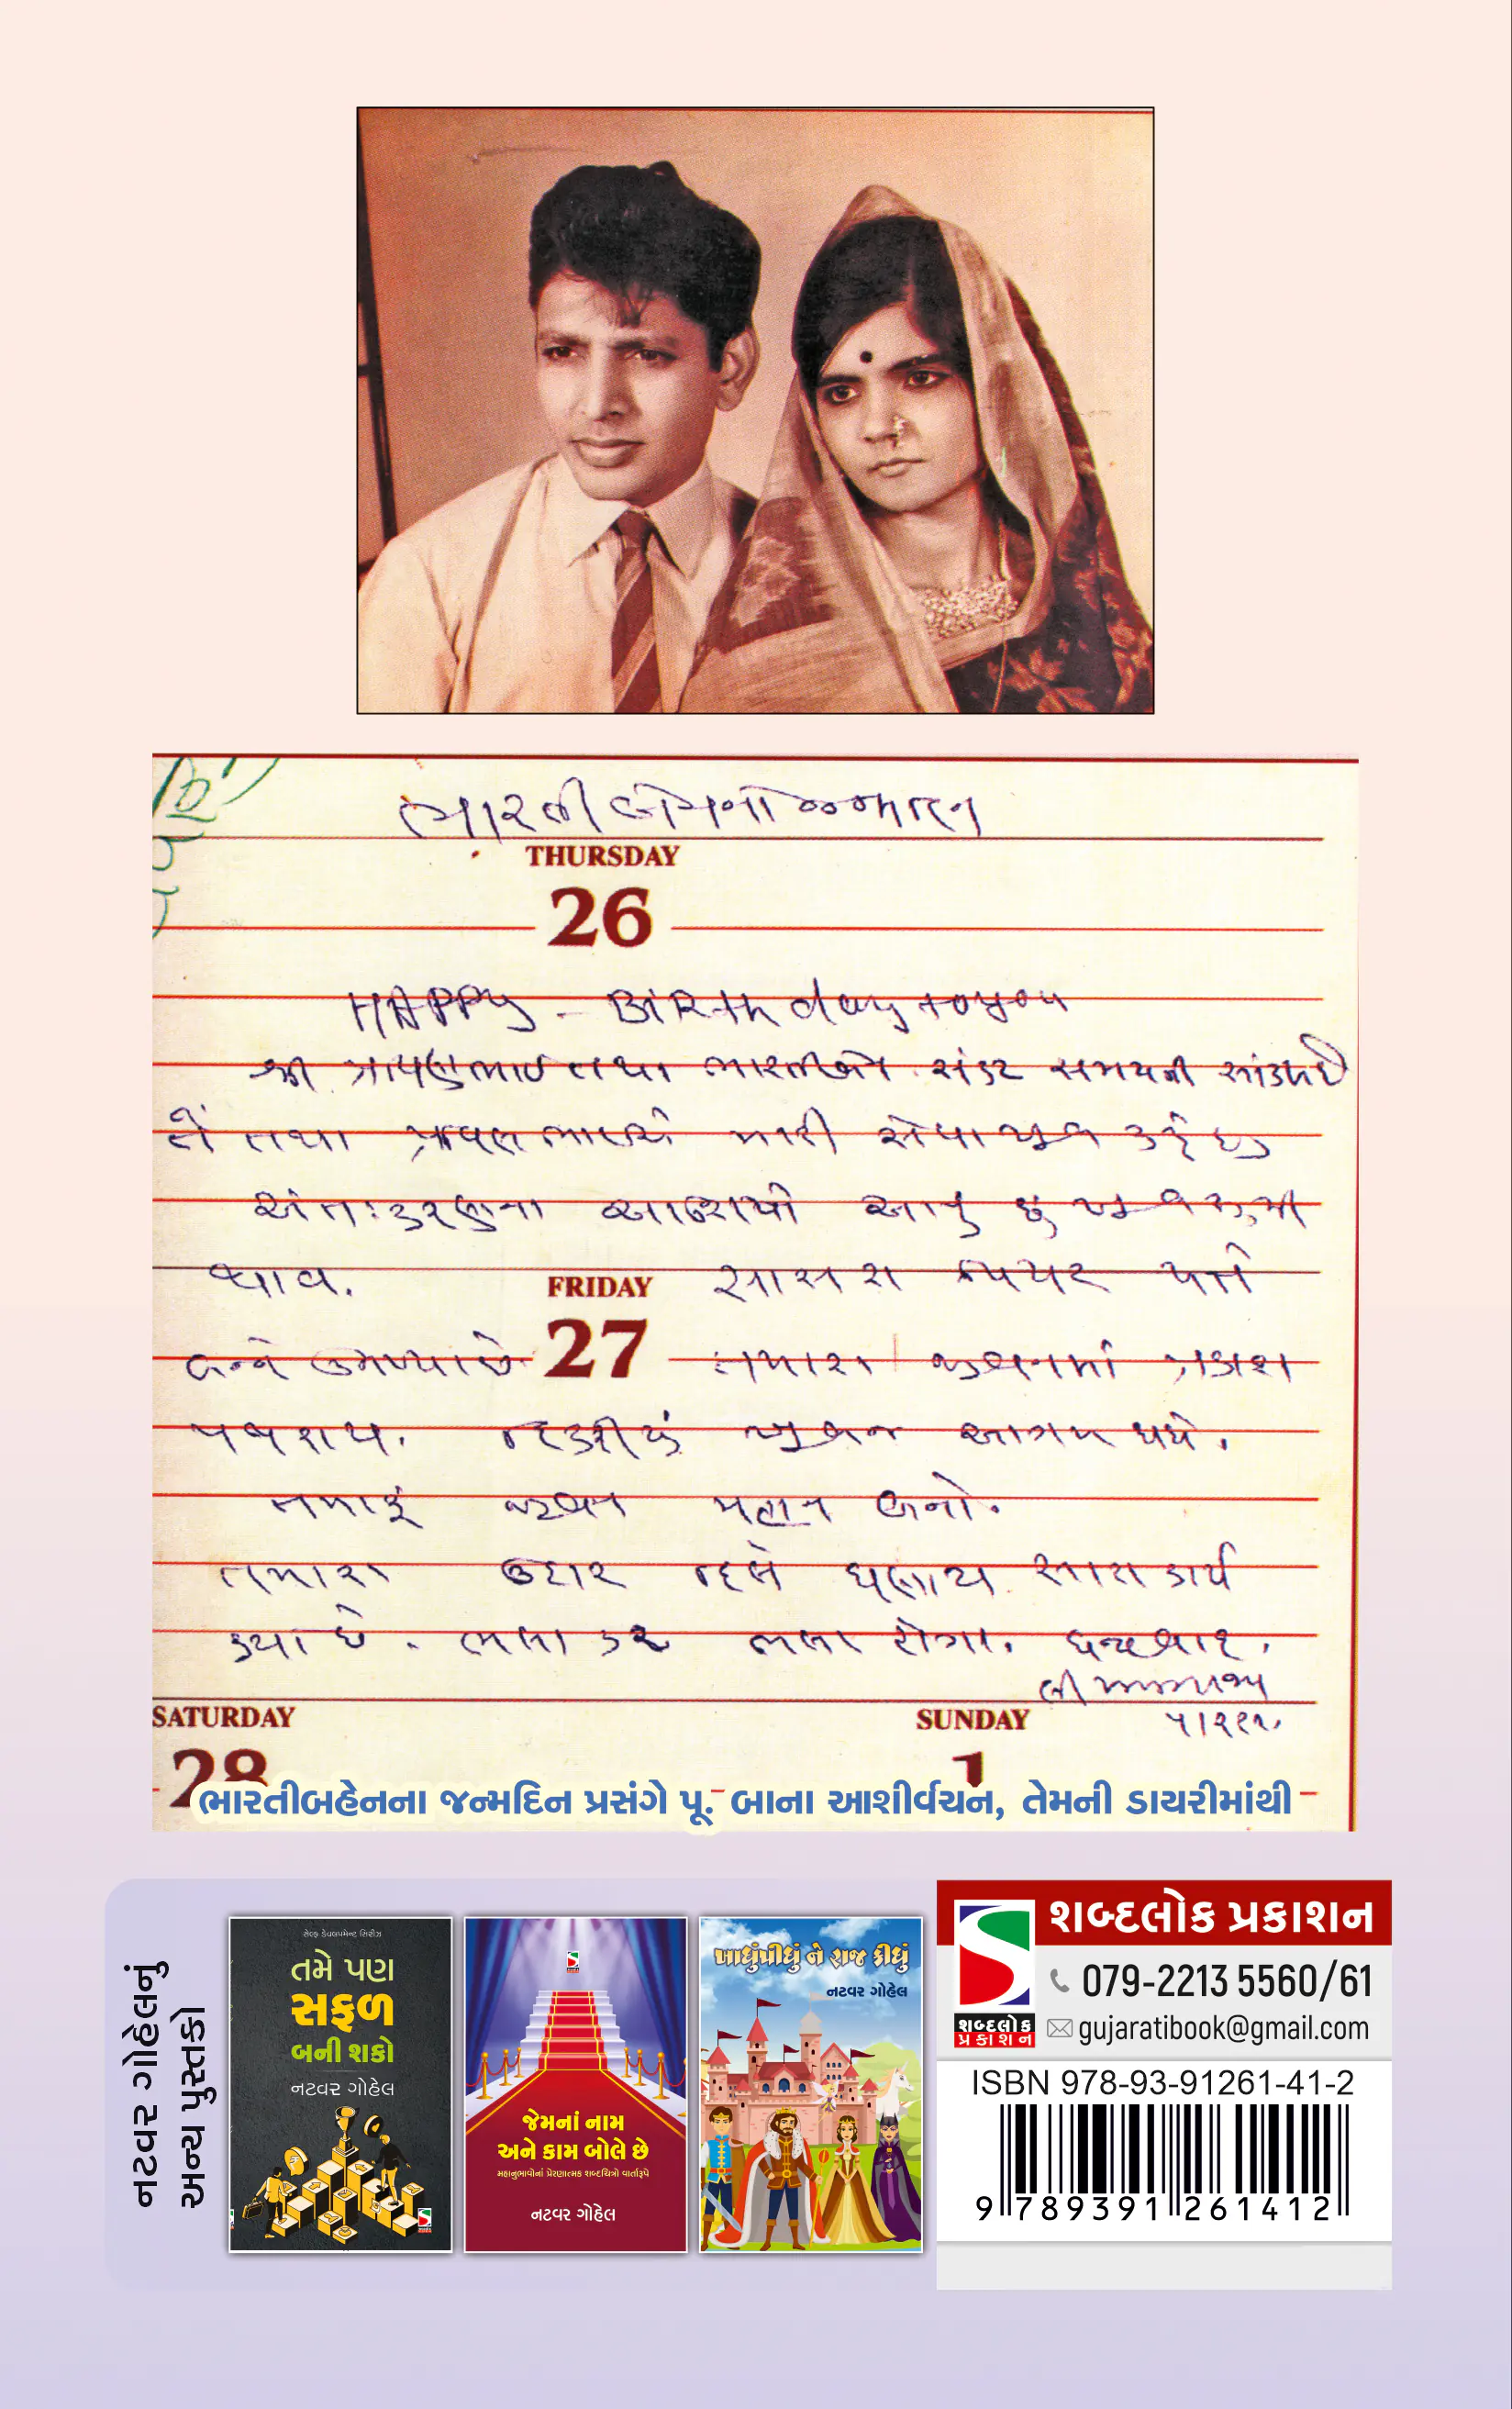 ભારતી બેનનો જન્મદિન
THURSDAY
26
HAPPY - BiRth day to you
શ્રી શ્રાવણભાઈ તથા ભારતીબેને સંકટ સમયની
તથા શ્રાવણ મારી સેવા ખુબ કરે છે
અંતઃકરણના આપું છું ખુબ સુખી
થાવ.
FRIDAY
સાસરા પિયર
બન્ને છે
27
તમારા જીવનમાં પ્રકાશ
પથરાય. દિકરીયું ખુબજ આગળ વધે.
તમારૂં જીવન મહાન બનો.
તમારા ઉદાર દિલે ઘણાય સારા કાર્ય
કર્યા છે. ભલા કર ભલા હોગા. ધન્યવાદ.
SATURDAY
28
SUNDAY
1
ભારતીબહેનના જન્મદિન પ્રસંગે પૂ. બાના આશીર્વચન, તેમની ડાયરીમાંથી
નટવર ગોહેલનું
અન્ય પુસ્તકો
સેલ્ફ ડેવલપમેન્ટ સિરીઝ
તમે પણ
સફળ
બની શકો
નટવર ગોહેલ
જેમનાં નામ
અને કામ બોલે છે
મહાનુભાવોનાં પ્રેરણાત્મક શબ્દચિત્રો વાર્તારૂપે
નટવર ગોહેલ
ખાધુંપીધું ને રાજ કીધું
નટવર ગોહેલ
શબ્દલોક પ્રકાશન
શબ્દલોક
પ્રકાશન
079-2213 5560/61
gujaratibook@gmail.com
ISBN 978-93-91261-41-2
9 789391 261412